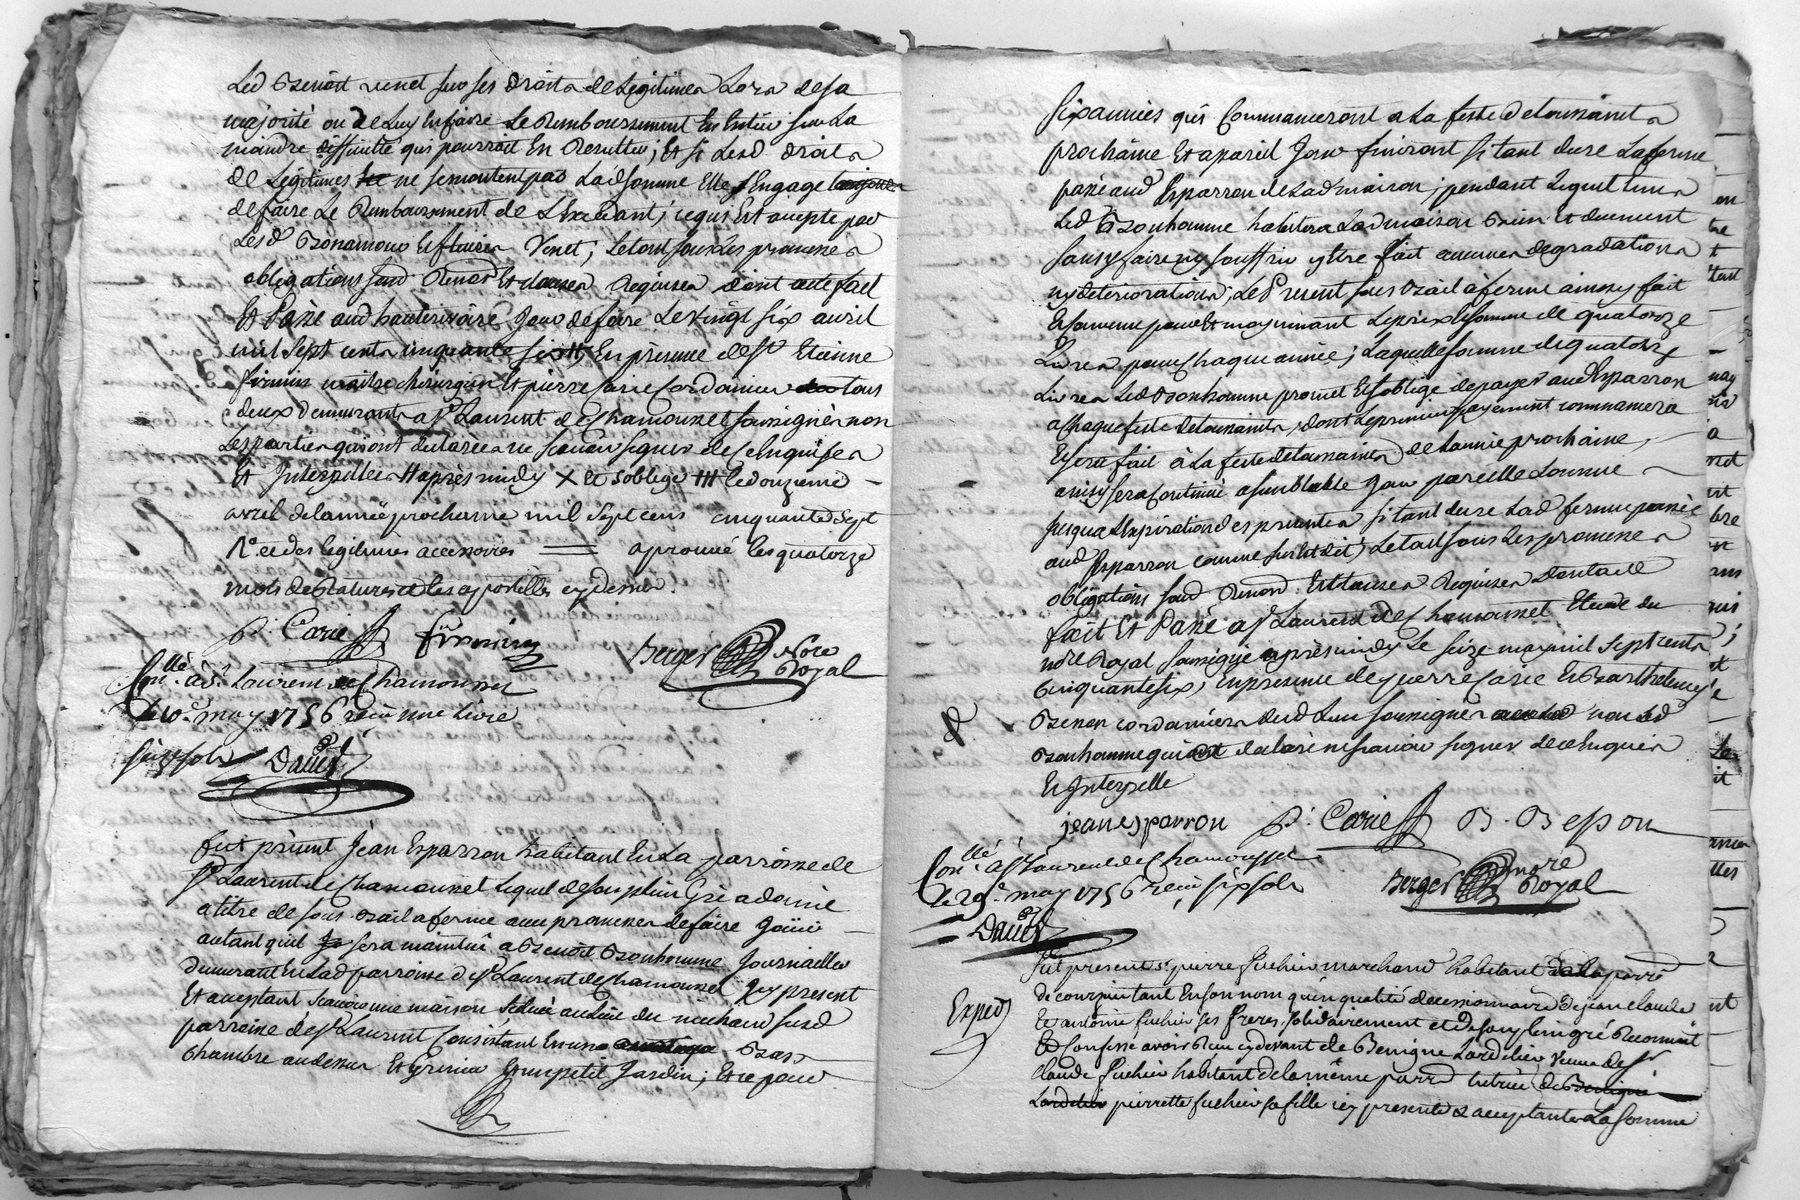 Led Benoit venet sur ses droits de legitimes Lors de sa
majorité ou de Luy en faire Le Remboursement En Entier sur La
moindre difficulté qui pourrait En Resulter; Et si Lesd droits
de Légitimes ne se montent pas Lad somme Elle s'Engage
de faire Le Remboursement de L'excedant; ce qui Est accepté par
Lesd Bonamour Et Venet; Le tout sous Les promesses
obligations Renon Et clauses Requises dont acte fait
Et Passé aud hauterivoire jour de foire Le vingt six avril
mil sept cents cinquante six H Enpresence de Sr Etienne
firmin maitre chirurgien Et pierre Carie Cordonnier tous
deux demeurants a St Laurent de Chamousset soussignés non
Les parties qui ont declarées ne scavoir signer de ce Enquises
Et Interpellées H apres midy X et soblige HH le douzieme
avril de lannée prochaine mil sept cens cinquante Sept
et des legitimes accessoires = aprouvé les quatorze
mots de Ratures et les apostilles cy dessus.
p: Carie firmin Berger Nore Royal
Conllé à St Laurent de Chamousset
le 10e may 1756 reçu une Livre
six sols David
fut présent Jean Esparron habitant En La parroisse de
St Laurent de Chamousset Lequel de son plein Gré a donné
a titre de sous bail a ferme avec promesse de faire Jouir
autant quil sera maintenu a Benoit Bonhomme Journallier
demeurant En Lad parroisse de St Laurent de Chamousset Icy present
Et acceptant scavoir une maison Située au Lieu du michaud susd
parroisse de St Laurent Consistant En une Bas
chambre au dessus Et Grenier Et un petit Jardin; Et ce pour
six années qui Commanceront a La feste de toussaints
prochaine Et a pareil Jour finiront si tant dure La ferme
passé aud Esparron de Lad maison; pendant Lequel tems
Led Bonhomme habitera Lad maison Bien Et duement
sans y faire ny souffrir y Etre fait aucunes degradations
ny deteriorations; Le Present sous bail à ferme ainsy fait
Et convenu pour Et moyennant Le prix Et somme de quatorze
Livres pour Chaque année; Laquelle somme de quatorze
Livres Led Bonhomme promet Et soblige de payer aud Esparron
a Chaque feste de toussaints, dont Le premier payement commancera
Et sera fait à La feste de toussaints de Lannée prochaine,
ainsy sera Continué a semblable Jour pareille somme
Jusqua LExpiration des presentes si tant dure Lad ferme passée
aud Esparron comme sus Est dit; Le tout sous Les promesses
obligations Renon Et clauses Requises dont acte
fait Et Passé a St Laurent de Chamousset Etude du
nore Royal soussigné apres midy Le seize may mil sept cents
Cinquante six, En presence de pierre Carie Et Barthelemy
Besson cordonniers dud Lieu soussignés non Led
Bonhomme qui a declaré ne scavoir signer de ce Enquis
Et Interpellé
jean esparron p: Carie B. Besson
Conllé à St Laurent de Chamousset
le 29e may 1756 reçu six sols Berger nore Royal
David
fut present Sr pierre fuchier marchand habitant
de courzieu tant En son nom qu'en qualité de cessionnaire de jean claude
Exped
Et antoine fuchier ses freres solidairement et de son plein gré Reconnait
Et confesse avoir Reçu cy devant de Benigne Lardelier veuve de Sr
claude fuchier habitant de la même parr
pierrette fuchier sa fille icy presente & acceptante La somme